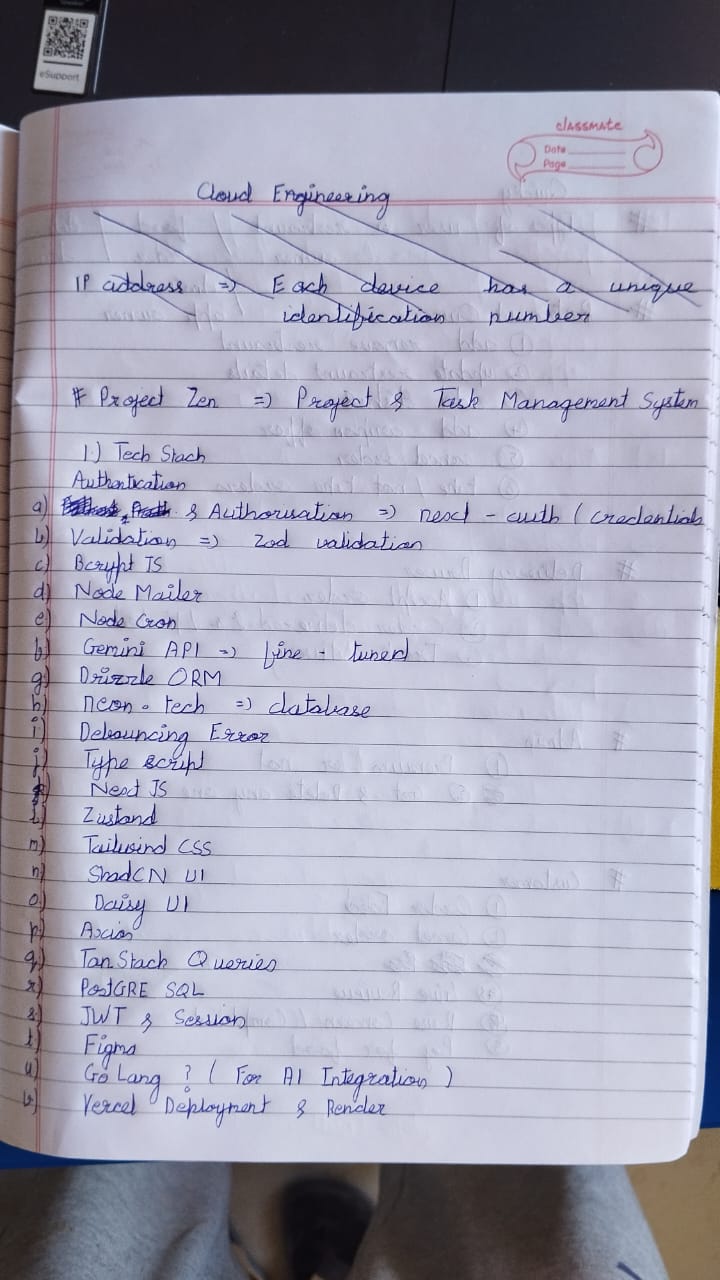 eSupport
classmate
Date
Page
Cloud Engineering
IP address => Each device has a unique
identification number
# Project Zen => Project & Task Management System
1.) Tech Stack
Authentication
a) & Authorisation => next - auth ( credentials
b) Validation => Zod validation
c) Bcrypt JS
d) Node Mailer
e) Node Cron
f) Gemini API => fine - tuned
g) Drizzle ORM
h) neon. tech => database
i) Debouncing Error
j) Type script
k) Next JS
l) Zustand
m) Tailwind CSS
n) ShadCN UI
o) Daisy UI
p) Axios
q) Tan Stack Queries
r) PostGRE SQL
s) JWT & Session
t) Figma
u) Go Lang ? ( For AI Integration )
v) Vercel Deployment & Render